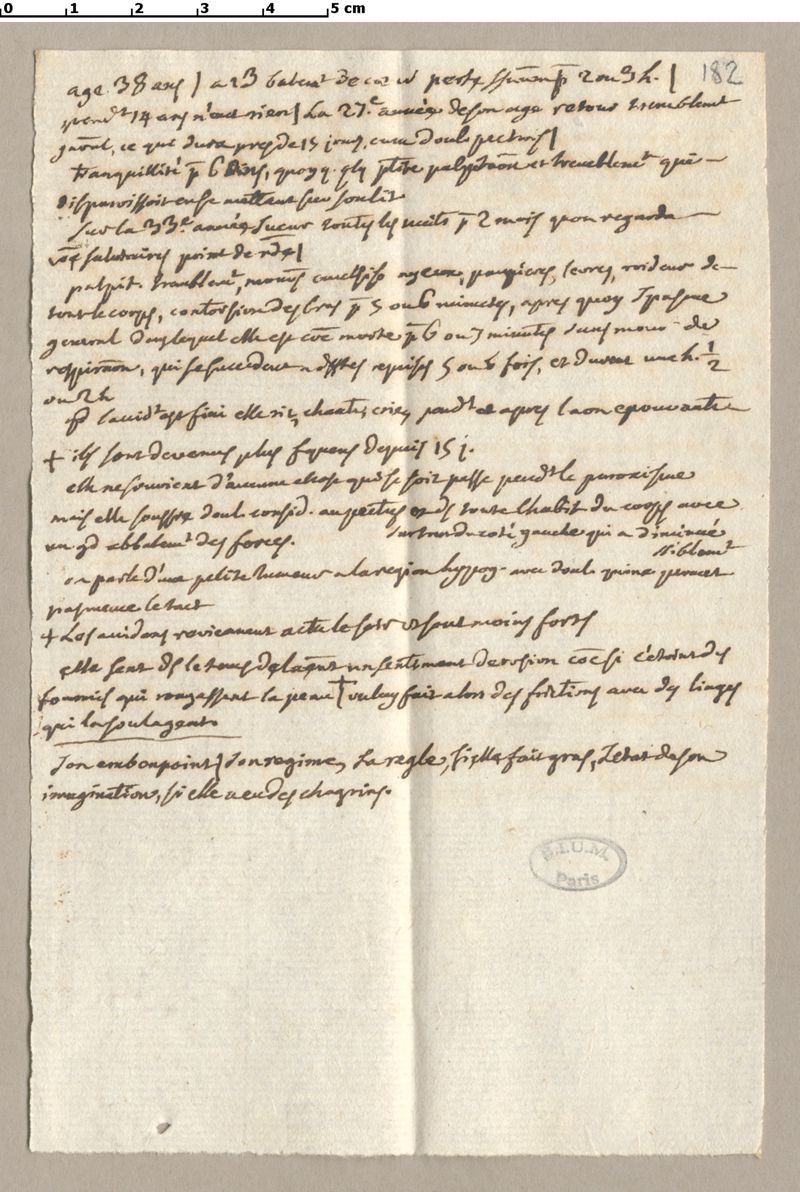 0 1 2 3 4 5 cm
182
age 38 ans | a 23 batemt de cœur perte p 2 ou 3 h. |
pendt 14 ans n'eut rien | La 27.e année de son age retour tremblemt
gnral, ce qui dura pres de 15 jours, cum dol. pectoris |
tranquillité p 6 ans, quoyq. qlq ptite palpitaon et tremblemt qui
disparoissoit en se mettant sur son lit
sur la 33.e année sueur toutes les nuits p 2 mois qu'on regarda
salutaires point de |
palpit. tremblemt, mouvs convulsifs aux yeux, paupieres, levres, roideur de
tout le corps, contorsion des bras p 5 ou 6 minutes, apres quoy spasme
general dans lequel elle est coe morte p 6 ou 7 minutes sans mouv de
respiraon, qui se succedent a dfftes reprises 5 ou 6 fois, et durent une h. 1/2
ou 2 h
qd l'accidt est fini elle rit, chante, crie, pendt et apres l'a on epouvante
+ ils sont devenus plus frquens depuis 15 j.
elle ne souvient d'aucune chose qui se soit passé pendt le paroxisme
mais elle souffre doul. consid. au pectus et ds toute l'habit. du corps avec
un gd abbatemt des forces. surtout du coté gauche qui a diminué
siblemt
on parle d'une petite tumeur a la region hypog. avec doul. qui ne permet
pas meme le tact
+ Les accidens reviennent le soir et sont moins forts
elle sent ds le tems un sentiment derosion coe si c'etoint des
fourmis qui rongassent la peau + on luy fait alors des frictions avec des linges
qui la soulagent.
son embonpoint | son regime, La regle, si elle fait gras, L'etat de son
imagination, si elle a eu des chagrins.
B.I.U.M.
Paris